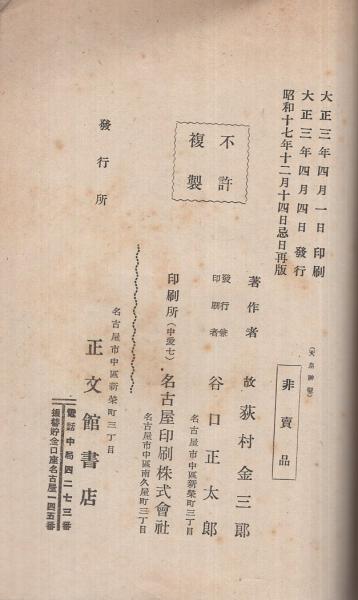 大正三年四月一日 印刷
大正三年四月四日 發行
昭和十七年十二月十四日忌日再版
非賣品
不許
複製
著作者 故 荻村金三郎
發行兼
印刷者 谷口正太郎
名古屋市中區新榮町三丁目
印刷所(中愛七)名古屋印刷株式會社
名古屋市中區南久屋町三丁目
發行所
名古屋市中區新榮町三丁目
正文館書店
電話中局四二七三番
振替貯金口座名古屋一四五番